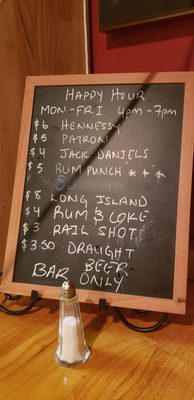 HAPPY HOUR
MON-FRI 4pm-7pm
$6 HENNESSY
$5 PATRON
$4 JACK DANIELS
$5 RUM PUNCH ***
$8 LONG ISLAND
$4 RUM & COKE
$3 RAIL SHOTS
$3.50 DRAUGHT
BEER
BAR ONLY